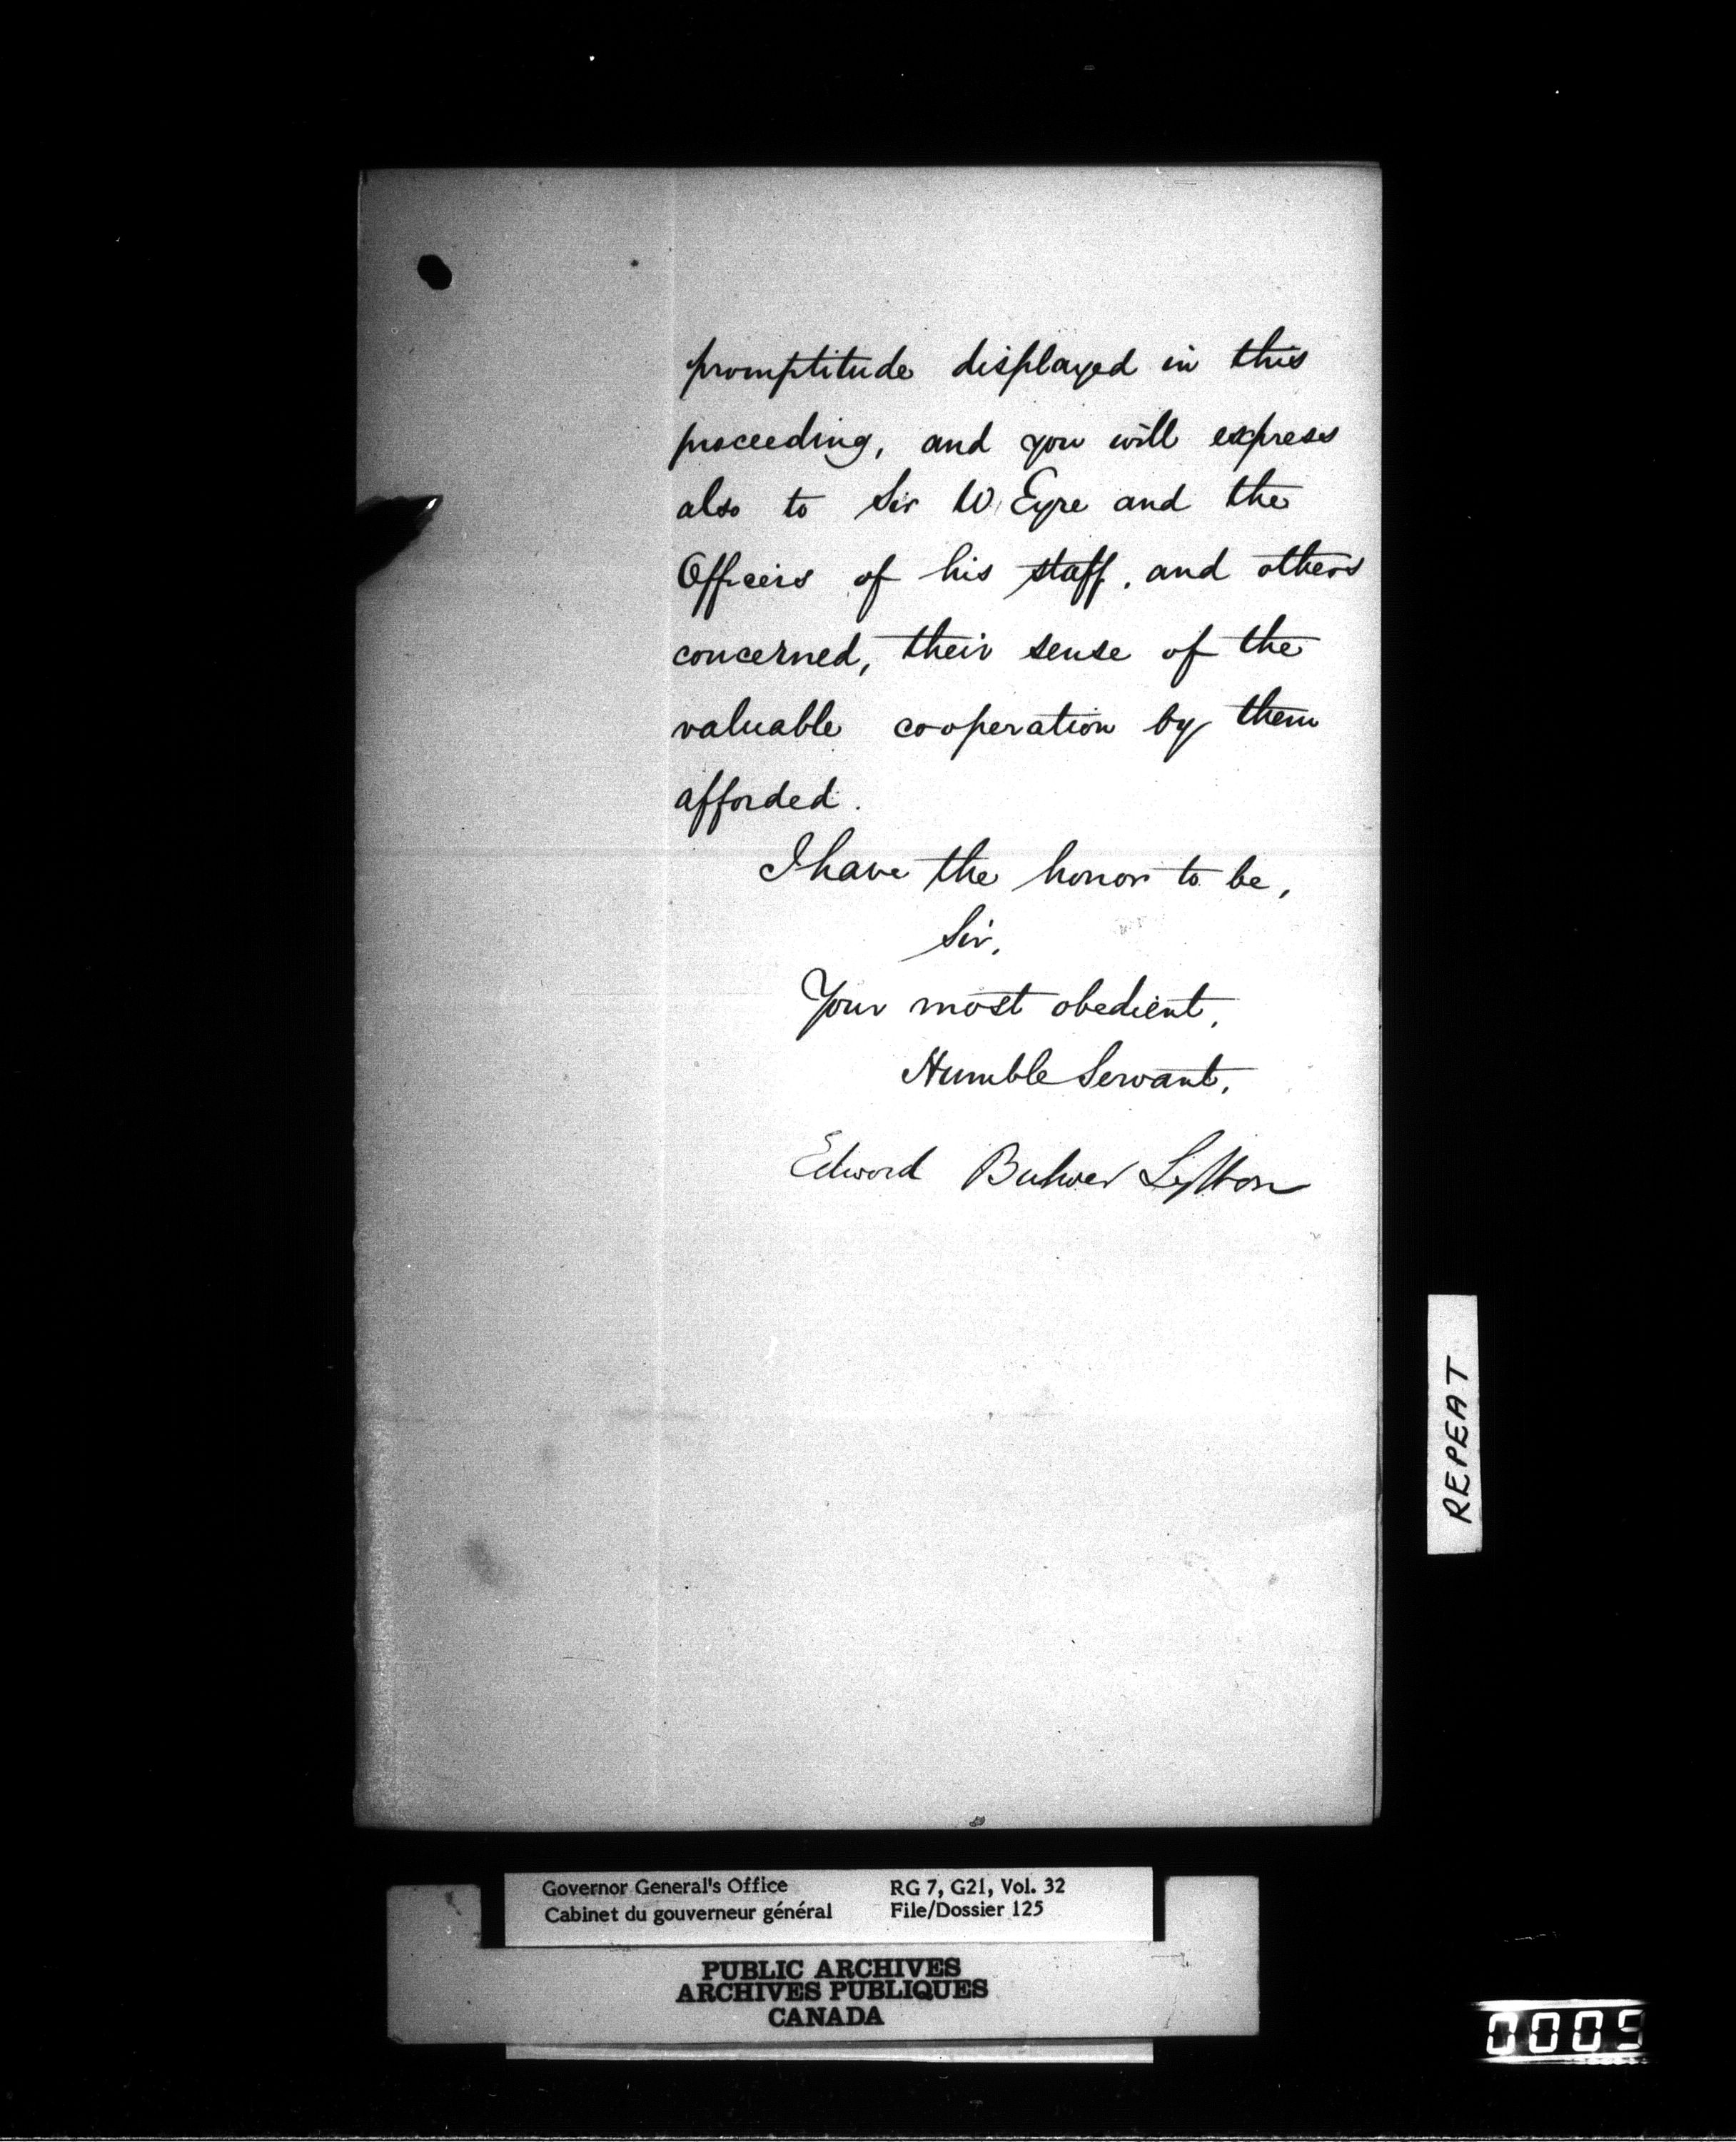 promptitude displayed in this
proceeding, and you will express
also to Sir W. Eyre and the
Officers of his staff, and others
concerned, their sense of the
valuable cooperation by them
afforded.
I have the honor to be,
Sir,
Your most obedient,
Humble Servant,
Edward Bulwer Lytton
REPEAT
Governor General's Office
Cabinet du gouverneur général
RG 7, G21, Vol. 32
File/Dossier 125
PUBLIC ARCHIVES
ARCHIVES PUBLIQUES
CANADA
0005